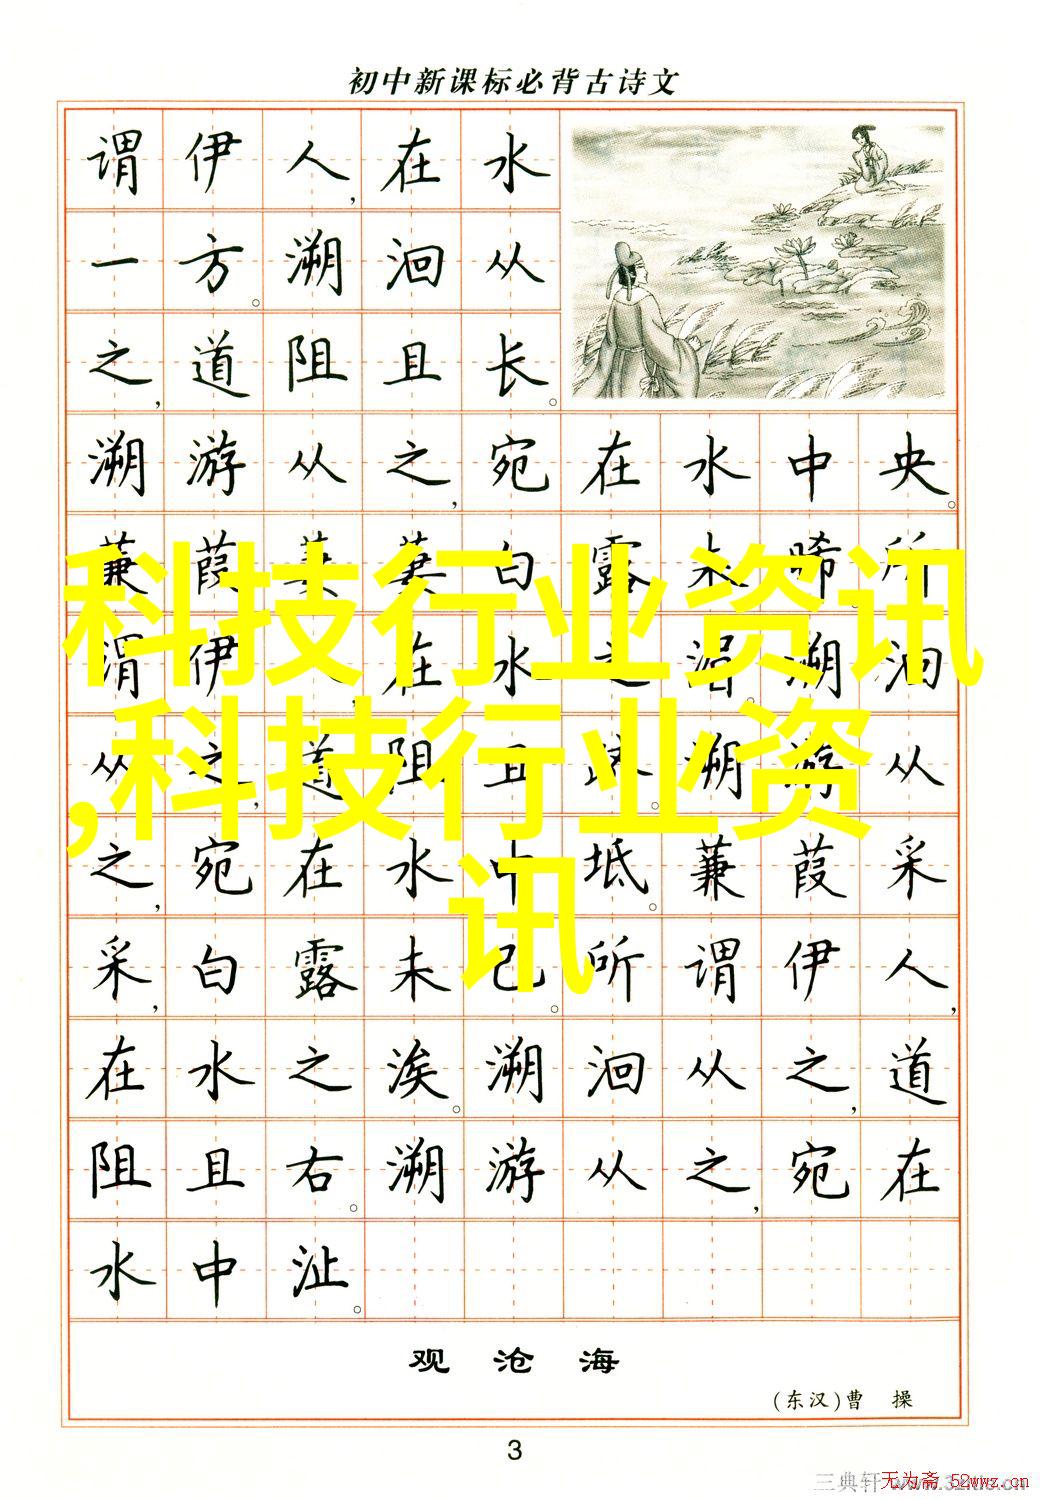 初中新课标必背古诗文
谓伊人，在水
一方。溯洄从
之，道阻且长。
溯游从之，宛在水中央。
蒹葭萋萋白露未晞。所
谓伊，在水之湄。溯洄
从之，道阻且跻。溯游从
之，宛在水中坻。蒹葭采
采，白露未已。所谓伊人，
在水之涘。溯洄从之，道
阻且右。溯游从之，宛在
水中沚。
科技行业资讯
,科技行业资
讯
观沧海
(东汉)曹 操
3
三典轩
无为斋 52wwz.cn